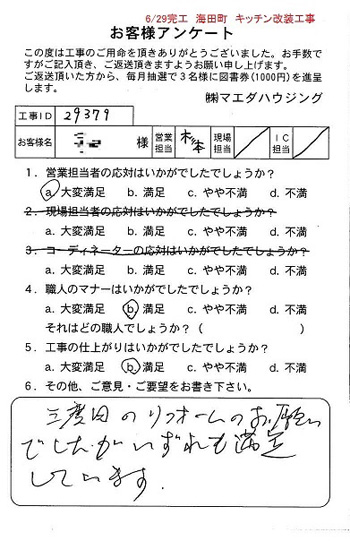 6/29完工 海田町 キッチン改装工事
お客様アンケート
この度は工事のご用命を頂きありがとうございました。お手数で
すがご記入頂き、ご返送頂きますようお願い申し上げます。
ご返送頂いた方から、毎月抽選で3名様に図書券(1000円)を進呈
します。
㈱マエダハウジング
工事ID 29379
お客様名 様 営業担当 杉本 現場担当 IC担当
1. 営業担当者の応対はいかがでしたでしょうか?
a. 大変満足 b. 満足 c. やや不満 d. 不満
2. 現場担当者の応対はいかがでしたでしょうか?
a. 大変満足 b. 満足 c. やや不満 d. 不満
3. コーディネーターの応対はいかがでしたでしょうか?
a. 大変満足 b. 満足 c. やや不満 d. 不満
4. 職人のマナーはいかがでしたでしょうか?
a. 大変満足 b. 満足 c. やや不満 d. 不満
それはどの職人でしょうか?( )
5. 工事の仕上がりはいかがでしたでしょうか?
a. 大変満足 b. 満足 c. やや不満 d. 不満
6. その他、ご意見・ご要望をお書き下さい。
三度目のリフォームのお願い
でしたがいずれも満足
しています.